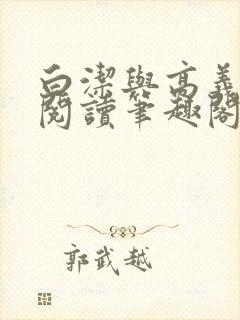 白潔與高義
閱讀筆趣閣
郭武越